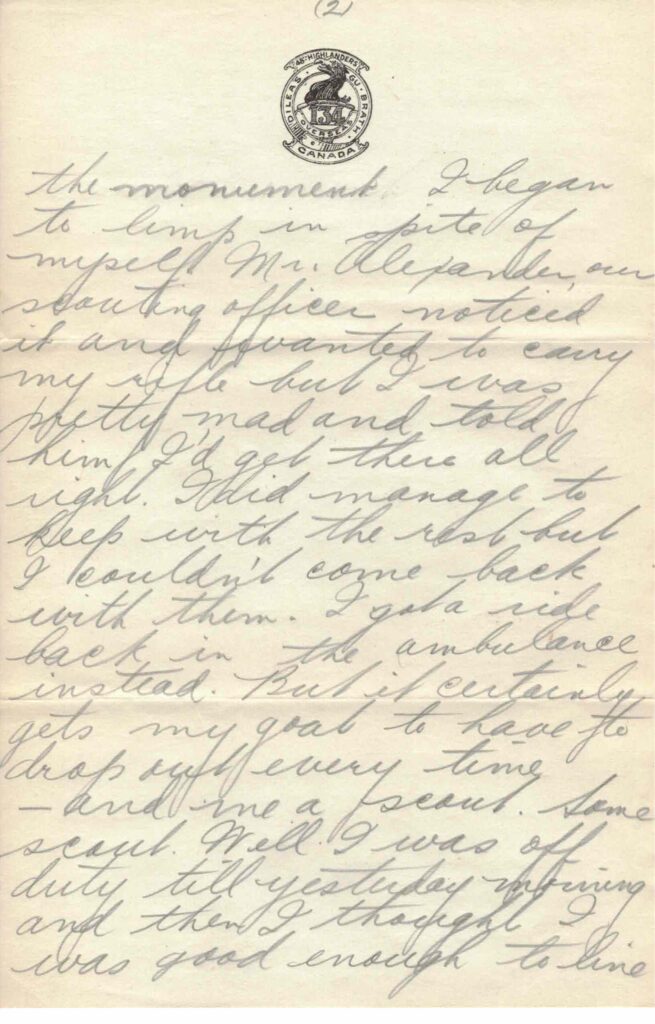 (2)
48TH HIGHLANDERS
DILEAS · GU · BRATH
134
OVERSEAS
CANADA
the monument I began
to limp in spite of
myself. Mr. Alexander, our
scouting officer noticed
it and wanted to carry
my rifle but I was
pretty mad and told
him I'd get there all
right. I did manage to
keep with the rest but
I couldn't come back
with them. I got a ride
back in the ambulance
instead. But it certainly
gets my goat to have to
drop out every time
– and me a scout. Some
scout. Well I was off
duty till yesterday morning
and then I thought I
was good enough to line